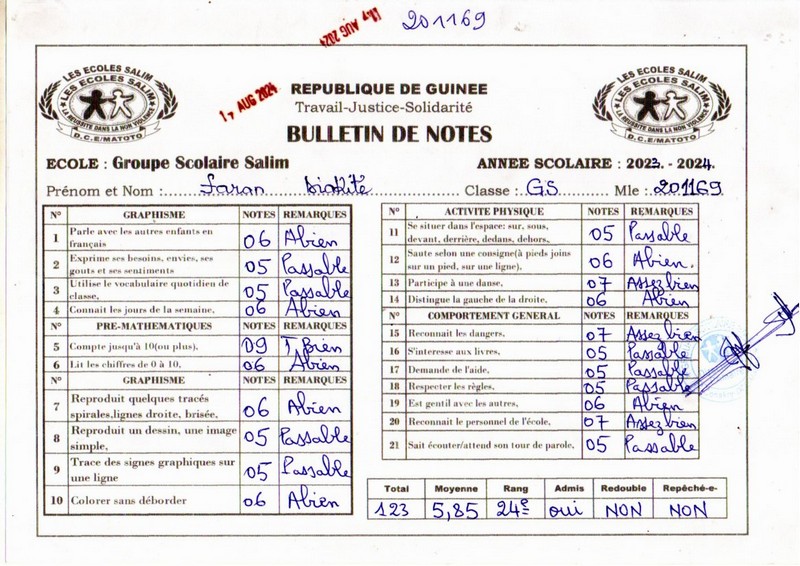 201169
17 AUG 2024
17 AUG 2024
LES ECOLES SALIM
LES ECOLES SALIM
LA REUSSITE DANS LA NON VIOLENCE
D.C.E/MATOTO
LES ECOLES SALIM
LES ECOLES SALIM
LA REUSSITE DANS LA NON VIOLENCE
D.C.E/MATOTO
REPUBLIQUE DE GUINEE
Travail-Justice-Solidarité
BULLETIN DE NOTES
ECOLE : Groupe Scolaire Salim ANNEE SCOLAIRE : 2023. - 2024.
Prénom et Nom :...... Saran Diakité ...... Classe : GS ...... Mle : 201169
N° GRAPHISME NOTES REMARQUES
1 Parle avec les autres enfants en français 06 Abien
2 Exprime ses besoins, envies, ses gouts et ses sentiments 05 Passable
3 Utilise le vocabulaire quotidien de classe, 05 Passable
4 Connait les jours de la semaine. 06 Abien
N° PRE-MATHEMATIQUES NOTES REMARQUES
5 Compte jusqu'à 10(ou plus). 09 T Bien
6 Lit les chiffres de 0 à 10. 06 Abien
N° GRAPHISME NOTES REMARQUES
7 Reproduit quelques tracés spirales,lignes droite, brisée, 06 Abien
8 Reproduit un dessin, une image simple, 05 Passable
9 Trace des signes graphiques sur une ligne 05 Passable
10 Colorer sans déborder 06 Abien
N° ACTIVITE PHYSIQUE NOTES REMARQUES
11 Se situer dans l'espace: sur, sous, devant, derrière, dedans, dehors, 05 Passable
12 Saute selon une consigne(à pieds joins sur un pied, sur une ligne). 06 Abien.
13 Participe à une danse, 07 Assez bien
14 Distingue la gauche de la droite. 06 Abien
N° COMPORTEMENT GENERAL NOTES REMARQUES
15 Reconnait les dangers. 07 Assez bien
16 S'interesse aux livres. 05 Passable
17 Demande de l'aide. 05 Passable
18 Respecter les règles. 05 Passable
19 Est gentil avec les autres. 06 Abien
20 Reconnait le personnel de l'école. 07 Assez bien
21 Sait écouter/attend son tour de parole, 05 Passable
Total Moyenne Rang Admis Redouble Repêché-e-
123 5,85 24e oui NON NON